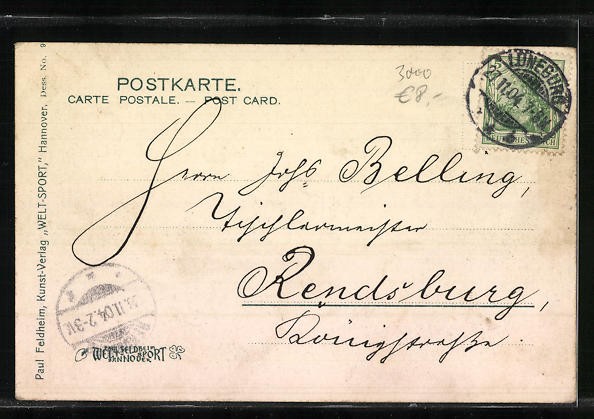 POSTKARTE.
CARTE POSTALE. — POST CARD.
3000
€8,-
LÜNEBURG
11.04.
Herrn Johs Belling,
Tischlermeister
Rendsburg,
Königstraße.
11.04.2-3V.
PAUL FELDHEIM
WELT-SPORT
HANNOVER
Paul Feldheim, Kunst-Verlag „WELT-SPORT," Hannover. Dess. No. 9